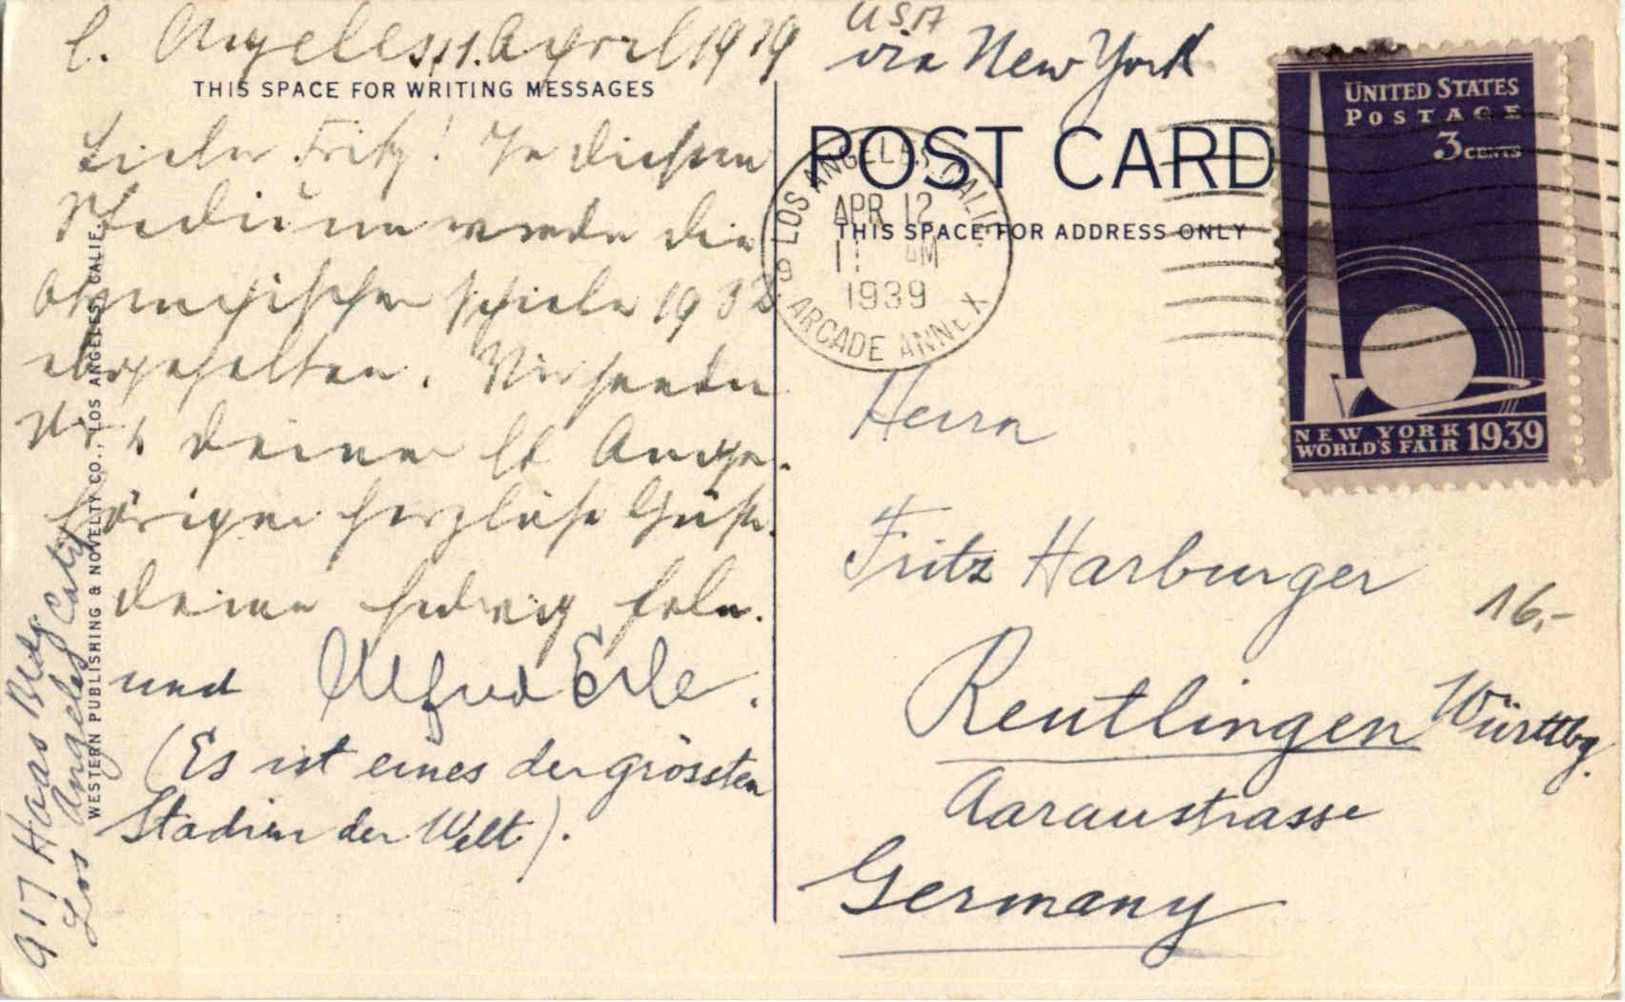 L. Angeles, 11. April 1939
THIS SPACE FOR WRITING MESSAGES
Lieber Fritz! In diesem
Stadium wurden die
Olympischen Spiele 1932
abgehalten. Wir senden
Dir & Deinen lb Ange-
hörigen herzliche Grüße.
Deine Hedwig
und Alfred Erle.
(Es ist eines der grössten
Stadien der Welt).
917 Haas Bldg.
Los Angeles Calif
WESTERN PUBLISHING & NOVELTY CO., LOS ANGELES, CALIF.
USA
via New York
POST CARD
THIS SPACE FOR ADDRESS ONLY
LOS ANGELES, CALIF.
APR 12
11 AM
1939
ARCADE ANNEX
9
UNITED STATES
POSTAGE
3 CENTS
NEW YORK
WORLD'S FAIR 1939
Herrn
Fritz Harburger
16,-
Reutlingen Württbg.
Aaraustrasse
Germany